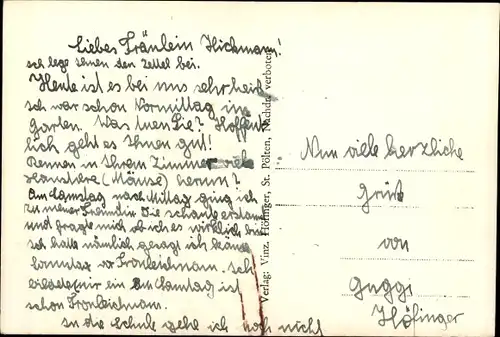 Liebes Fräulein Hickmann!
ich lege seinen den Zettel bei.
Heute ist es bei uns sehr heiß
ich war schon Vormittag im
Garten. Was tuen Sie? Hoffent
lich geht es Ihnen gut!
Rennen in Ihrem Zimmer viele
Haustiere (Mäuse) herum?
Am Samstag nach Mittag ging ich
zu meiner Freundin. Die schaute erstaunt
und fragte mich ob ich es wirklich bin
ich hatte nämlich gesagt ich käme
Sonntag vor Fronleichnam. Ich
bildete mir ein am Samtag ist
schon Fronleichnam.
In die Schule gehe ich noch nicht
Verlag: Vinz. Höfinger, St. Pölten, Nachdr. verboten
Nun viele herzliche
Grüße
von
Guggi
Höfinger